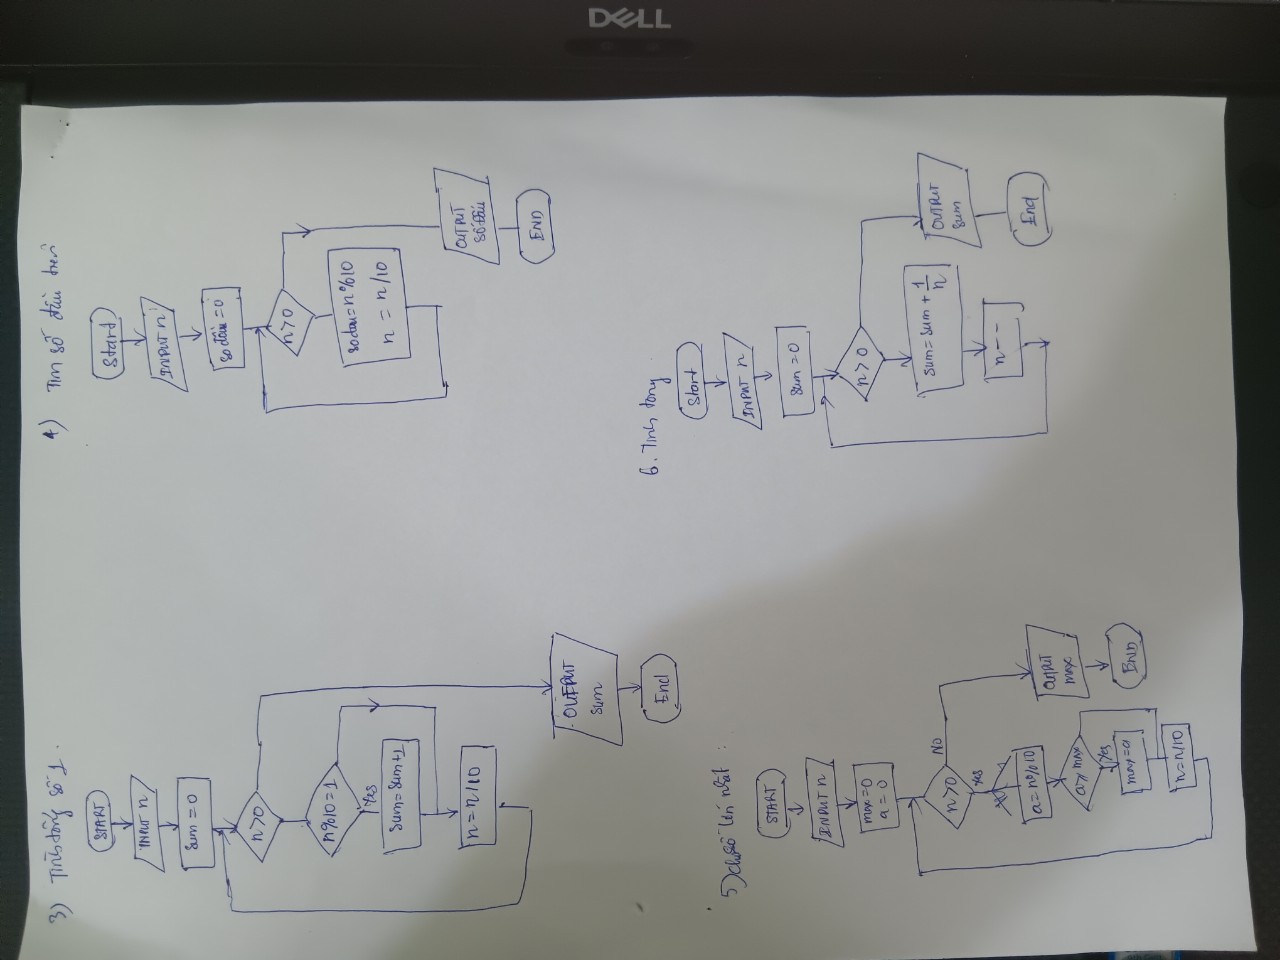 DELL
3) Tính tổng số 1.
START
INPUT n
sum = 0
n>0
n%10=1
Yes
sum=sum+1
n=n/10
OUTPUT
sum
End
4) Tìm số đầu tiên
Start
INPUT n
số đầu = 0
n>0
sodau=n%10
n = n/10
OUTPUT
số đầu
END
5) chữ số lớn nhất
START
INPUT n
max=0
a=0
n>0
No
Yes
a=n%10
a>max
Yes
max=a
n=n/10
OUTPUT
max
END
6. Tính tổng
Start
INPUT n
sum=0
n>0
sum=sum+1/n
n--
OUTPUT
sum
End